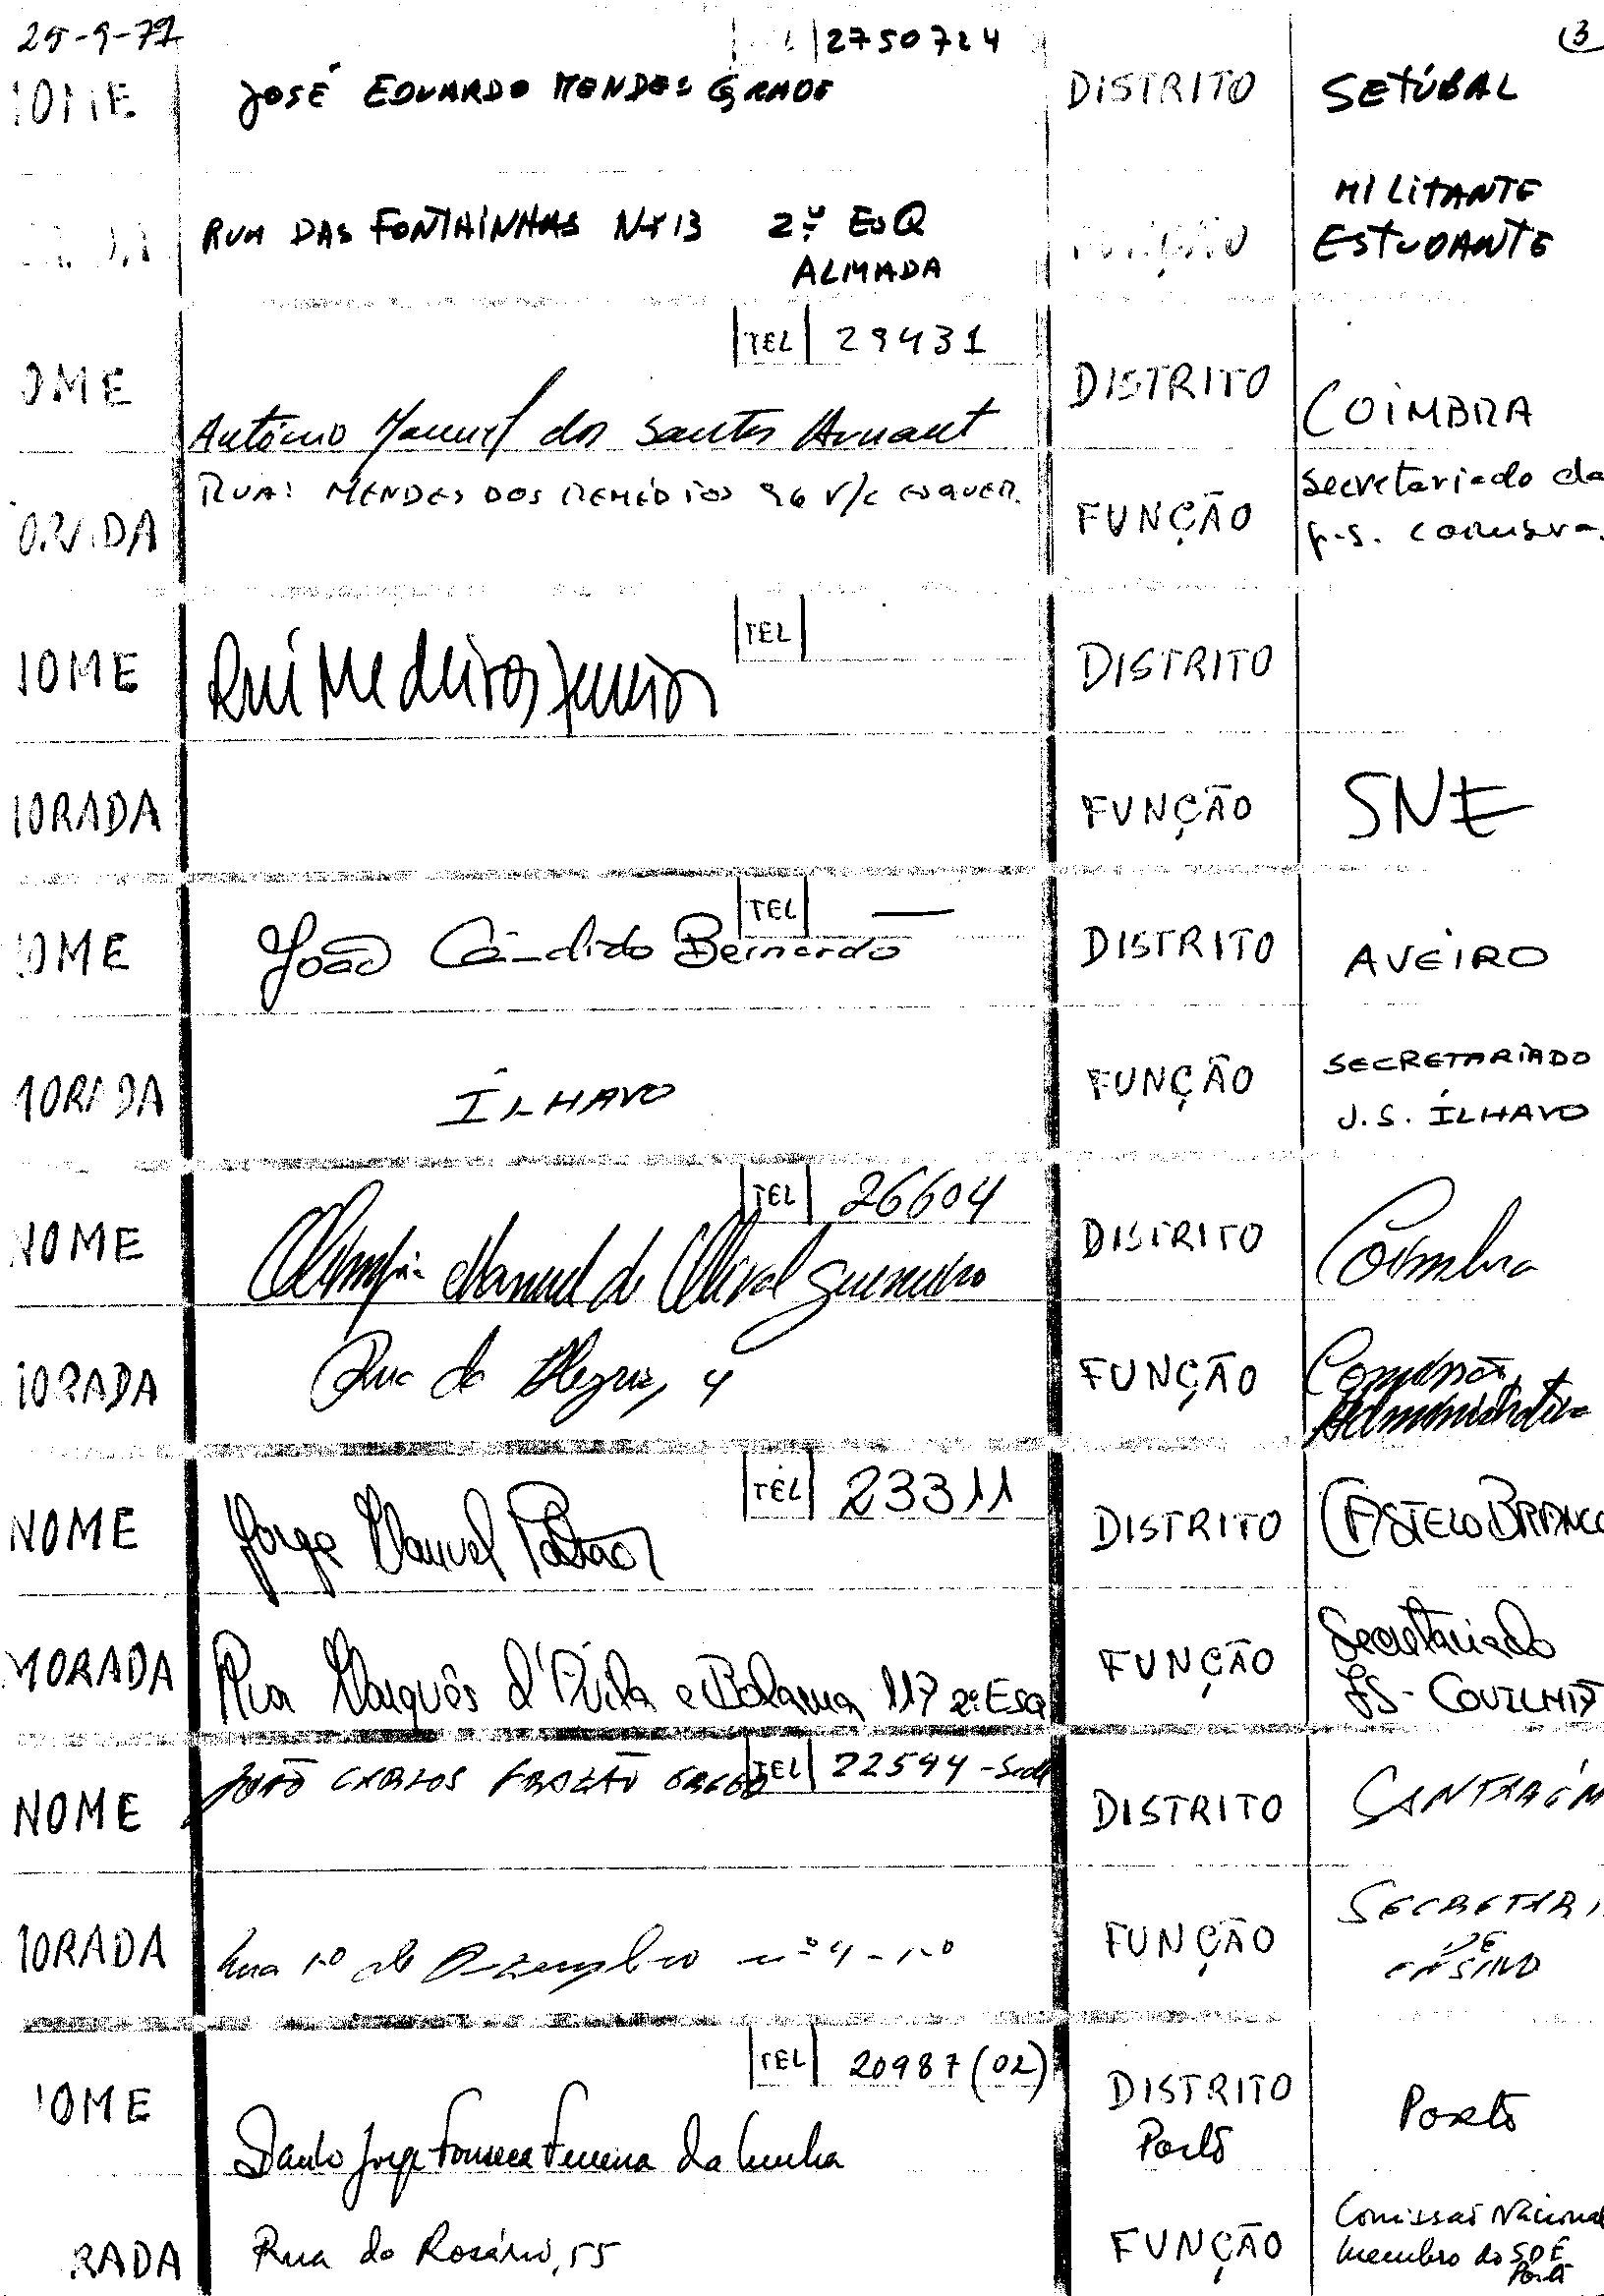 25-9-77
2750724
3
NOME JOSÉ EDUARDO MENDES GRADE DISTRITO SETÚBAL
RUA DAS FONTAINHAS Nº 13 2º ESQ FUNÇÃO MILITANTE
ALMADA ESTUDANTE
TEL 29431
OME António Manuel dos Santos Arnaut DISTRITO COIMBRA
ORADA RUA: MENDES DOS REMÉDIOS 96 r/c ESQUER. FUNÇÃO Secretariado da
COIMBRA
TEL
NOME Rui Medeiros DISTRITO
MORADA FUNÇÃO SNE
TEL —
OME João Cândido Bernardo DISTRITO AVEIRO
MORADA ÍLHAVO FUNÇÃO SECRETARIADO
J.S. ÍLHAVO
TEL 26604
NOME Manuel de Oliveira DISTRITO Coimbra
MORADA Rua da Alegria, 4 FUNÇÃO Comissão
Administrativa
TEL 23311
NOME Jorge Manuel Patrão DISTRITO CASTELO BRANCO
MORADA Rua Marquês d'Ávila e Bolama 117 2º Esq FUNÇÃO Secretariado
JS - COVILHÃ
TEL 22594 - Sede
NOME JOÃO CARLOS FRAZÃO DISTRITO SANTARÉM
MORADA Rua 1º de Dezembro nº 4 - 1º FUNÇÃO SECRETARI
DE
ENSINO
TEL 20987 (02)
NOME Paulo Jorge Fonseca Ferreira da Cunha DISTRITO Porto
Porto
RADA Rua do Rosário, 55 FUNÇÃO Comissão Nacional
Membro do SDE
Porto